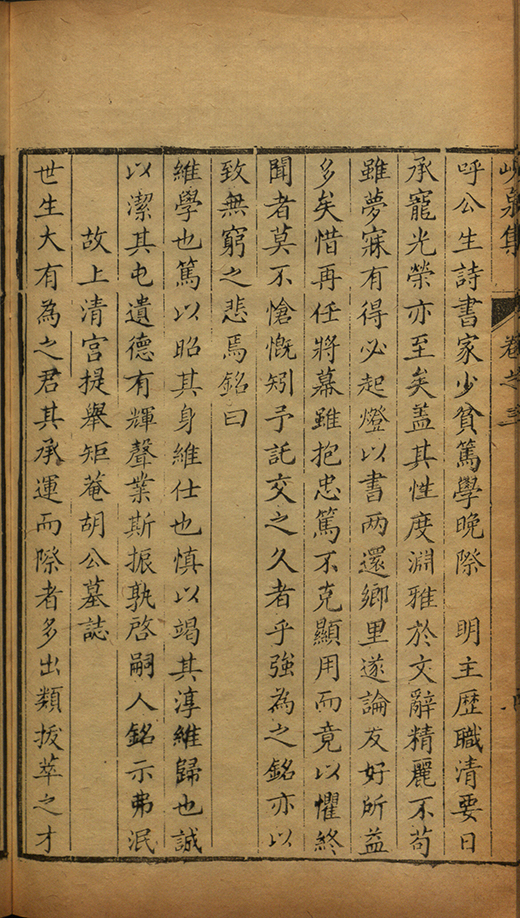 峴泉集 卷之三
呼公生詩書家少貧篤學晚際 明主歷職清要日
承寵光榮亦至矣盖其性度淵雅於文辭精麗不苟
雖夢寐有得必起燈以書两還鄉里遂論友好所益
多矣惜再任將幕雖抱忠篤不克顯用而竟以懼終
聞者莫不愴慨矧予託交之久者乎強為之銘亦以
致無窮之悲焉銘曰
維學也篤以昭其身維仕也慎以竭其淳維歸也誠
以潔其屯遺德有輝聲業斯振孰啓嗣人銘示弗泯
故上清宮提舉矩菴胡公墓誌
世生大有為之君其承運而際者多出類拔萃之才